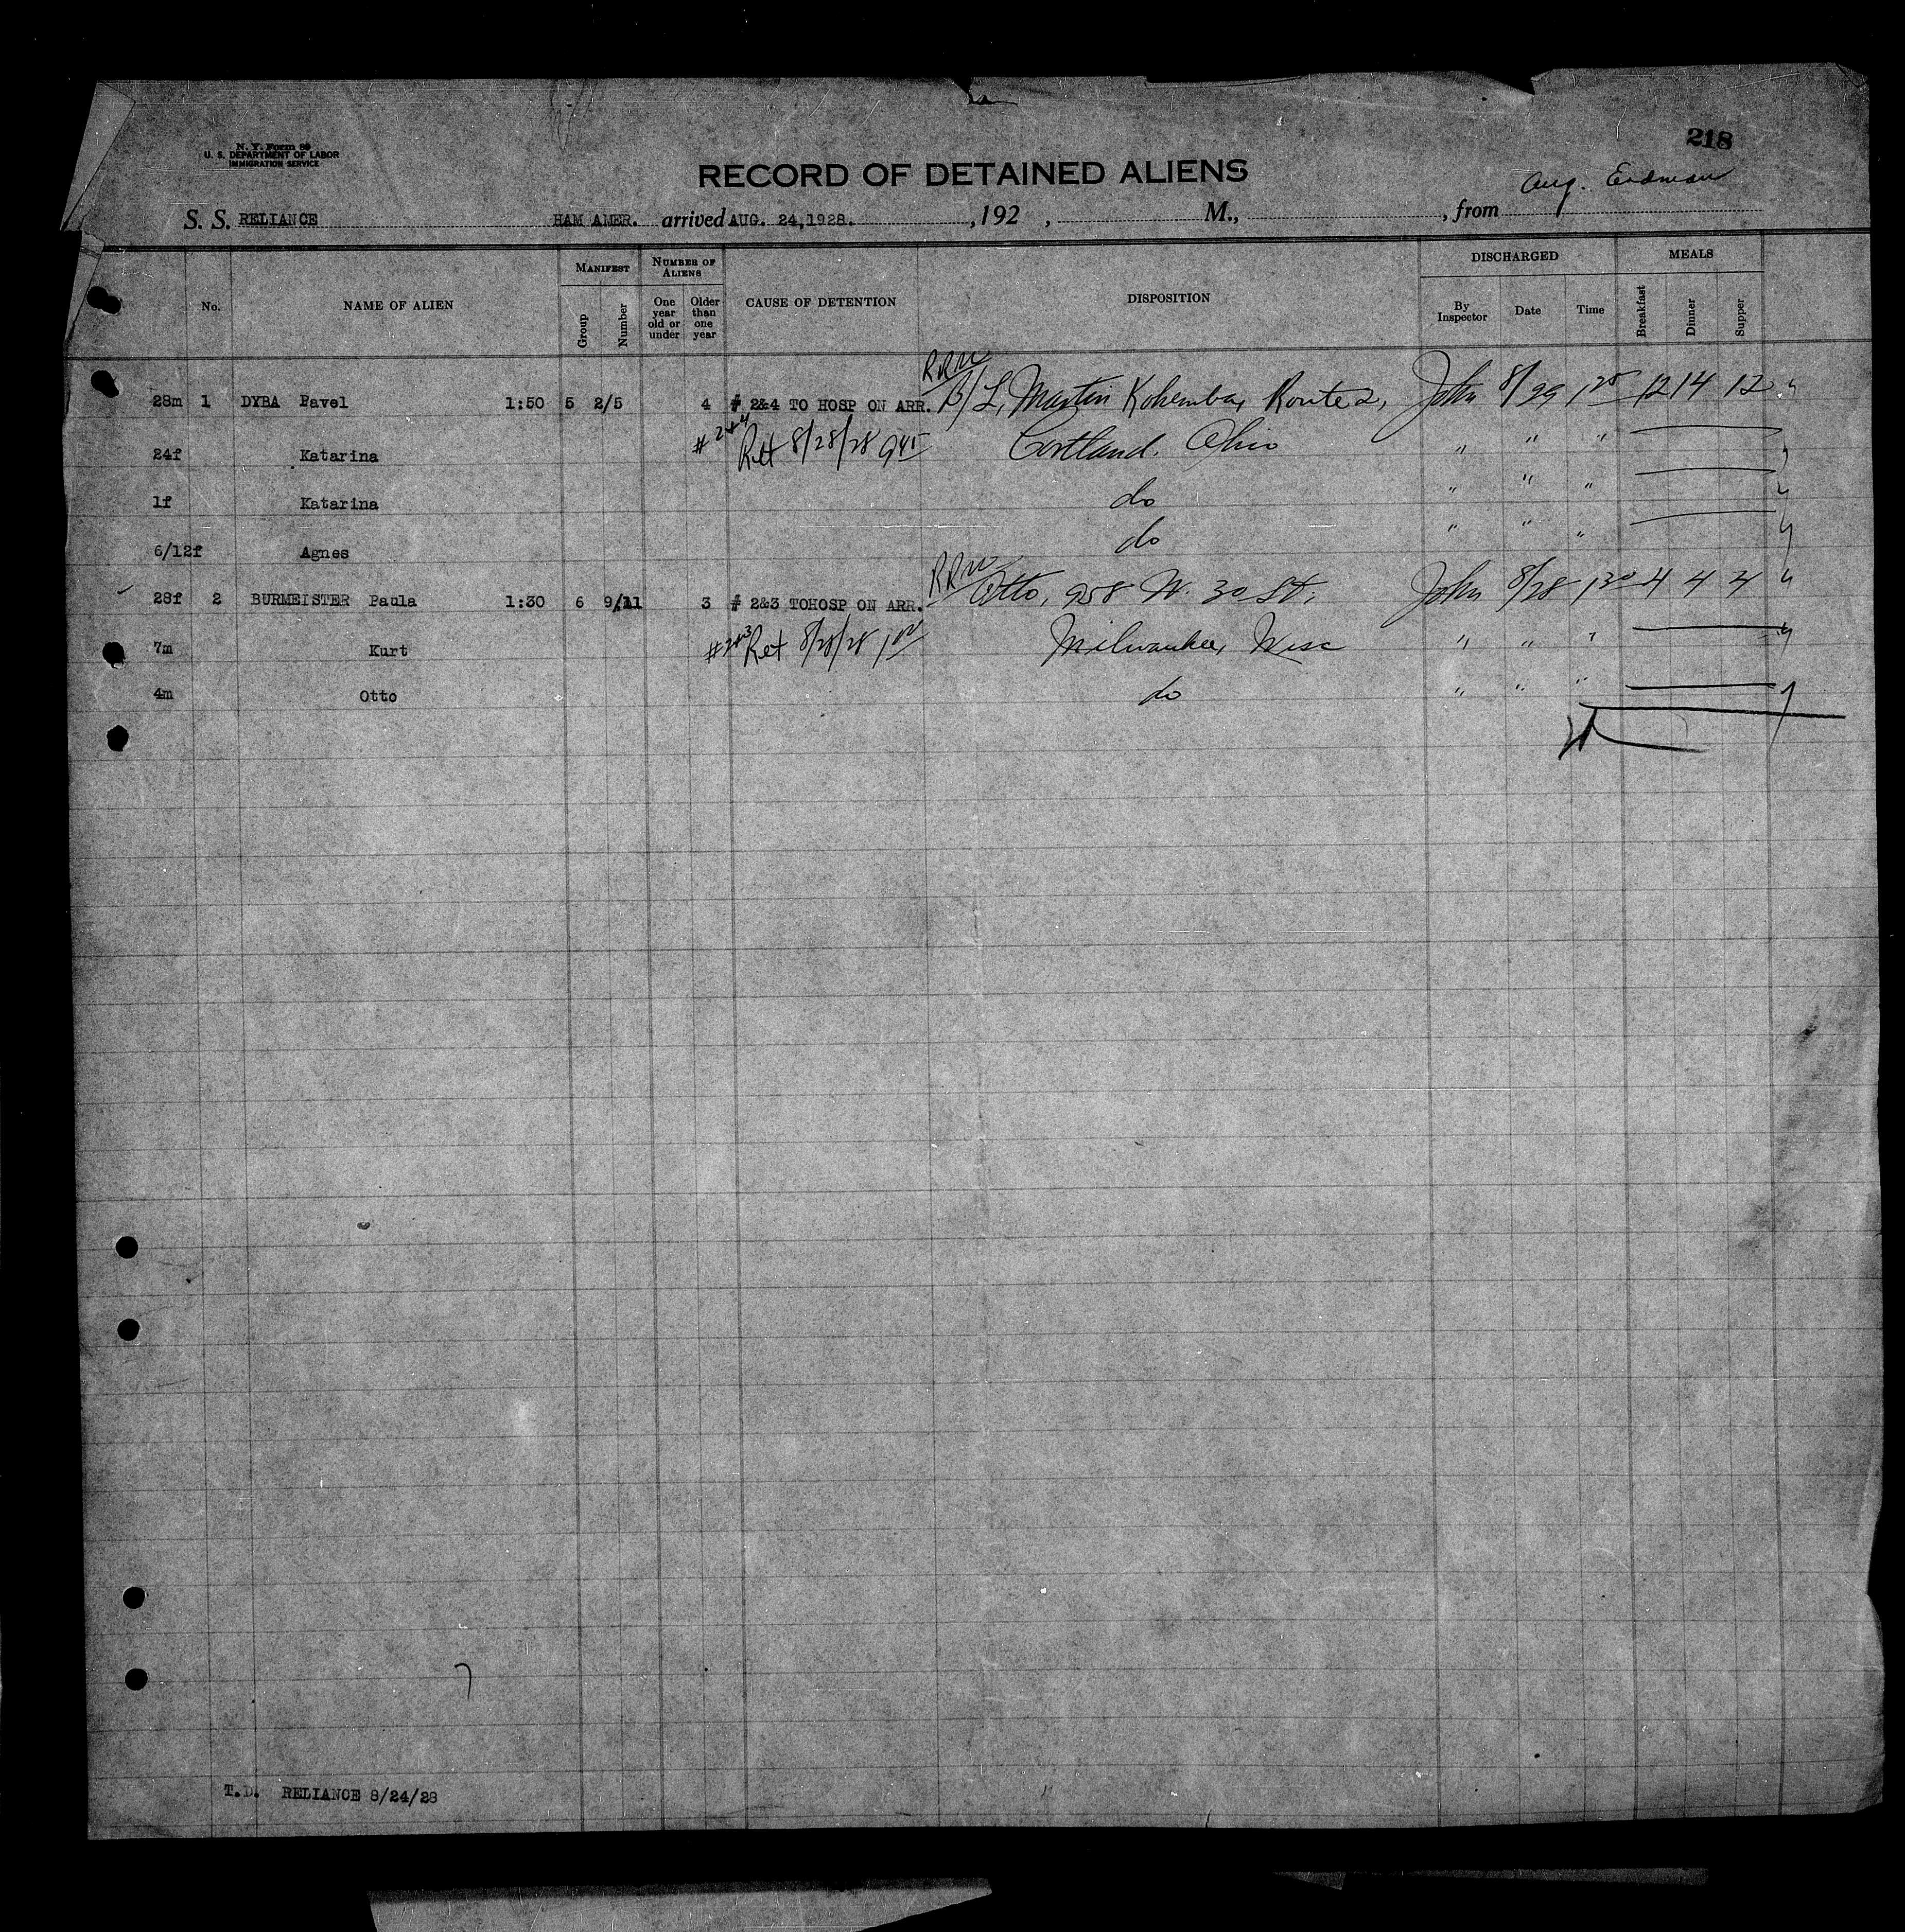 218
N. Y. Form 89
U. S. DEPARTMENT OF LABOR
IMMIGRATION SERVICE
RECORD OF DETAINED ALIENS
Aug. Erdman
S. S. RELIANCE HAM AMER. arrived AUG. 24,1928. , 192 , M., , from
No. NAME OF ALIEN MANIFEST Group Number NUMBER OF ALIENS One year old or under Older than one year CAUSE OF DETENTION DISPOSITION DISCHARGED By Inspector Date Time MEALS Breakfast Dinner Supper
28m 1 DYBA Pavel 1:50 5 2/5 4 # 2&4 TO HOSP ON ARR. RRW B/L, Martin Kohemba, Route 2, John 8/29 1 25 12 14 12
24f Katarina #2+4 Ret 8/28/28 945 Cortland. Ohio " " "
1f Katarina do " " "
6/12f Agnes do " " "
28f 2 BURMEISTER Paula 1:30 6 9/11 3 # 2&3 TOHOSP ON ARR. RRW Otto, 958 N. 30 St, John 8/28 1 30 4 4 4
7m Kurt #2+3 Ret 8/28/28 1 00 Milwaukee, Wisc " " "
4m Otto do " " "
7
T.D. RELIANCE 8/24/28